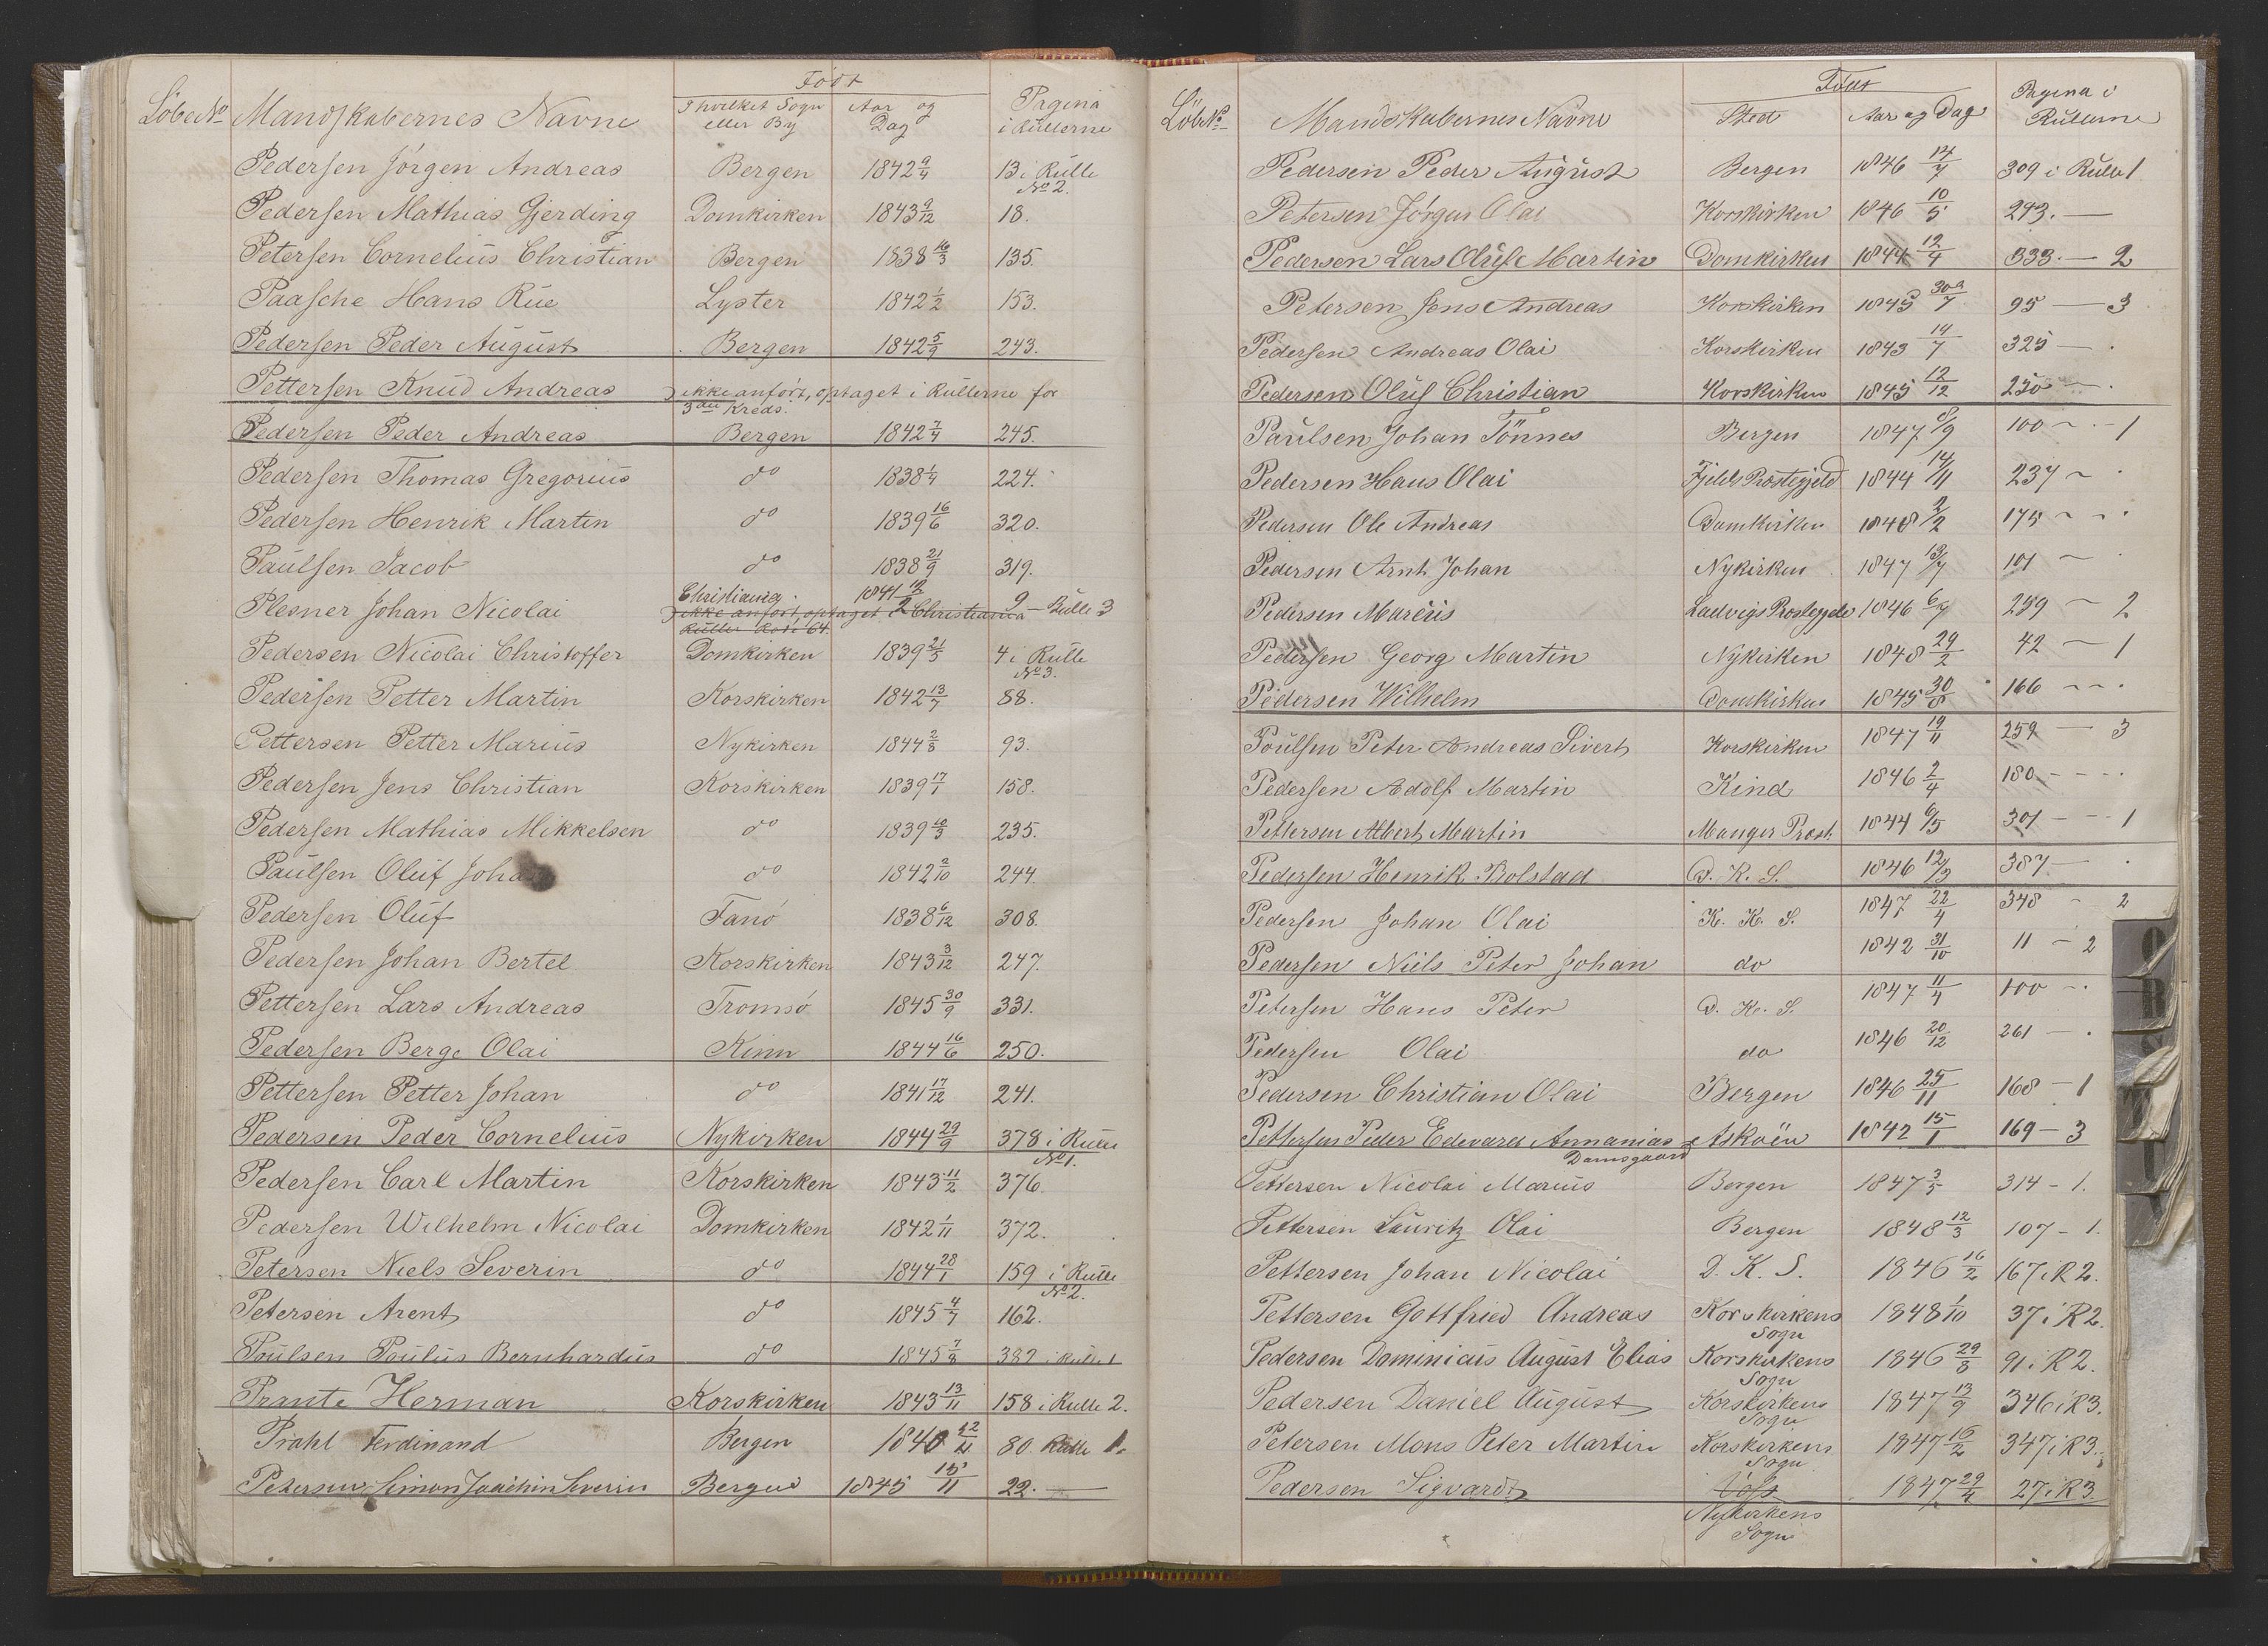 Født
LöbeNo Mandskabernes Navne I hvilket Sogn eller By Aar og Dag Pagina i Rullerne
Pedersen Jörgen Andreas Bergen 1842 9/4 13 i Rulle No 2.
Pedersen Mathias Gjerding Domkirken 1843 9/12 18.
Petersen Cornelius Christian Bergen 1838 16/3 135.
Paasche Hans Rue Lyster 1842 1/2 153.
Pedersen Peder August Bergen 1842 5/9 243.
Pettersen Knud Andreas ikke anfört, optaget i Rullerne for 3die Kreds.
Pedersen Peder Andreas Bergen 1842 7/4 245.
Pedersen Thomas Gregorius do 1838 1/4 224.
Pedersen Henrik Martin do 1839 16/6 320.
Paulsen Jacob do 1838 21/9 319.
Christiania 1841 12/2 9 – Rulle 3
Plesner Johan Nicolai ikke anfört, optaget i Christiania
Ruller
Pedersen Nicolai Christoffer Domkirken 1839 21/5 4 i Rulle No 3.
Pedersen Petter Martin Korskirken 1842 13/7 88.
Pettersen Petter Marius Nykirken 1844 2/8 93.
Pedersen Jens Christian Korskirken 1839 17/1 158.
Pedersen Mathias Mikkelsen do 1839 10/3 235.
Paulsen Oluf Johan do 1842 2/10 244.
Pedersen Oluf Fanö 1838 6/12 308.
Pedersen Johan Bertel Korskirken 1843 3/12 247.
Pettersen Lars Andreas Tromsö 1845 30/9 331.
Pedersen Berge Olai Kinn 1844 16/6 250.
Pettersen Petter Johan do 1841 17/12 241.
Pedersen Peder Cornelius Nykirken 1844 29/9 378 i Rulle No 1.
Pedersen Carl Martin Korskirken 1843 11/2 376
Pedersen Wilhelm Nicolai Domkirken 1842 1/11 372.
Petersen Niels Severin do 1844 28/1 159 i Rulle No 2.
Petersen Arent do 1845 4/7 162.
Poulsen Paulus Bernhardus do 1845 7/8 382 i Rulle 1
Prante Herman Korskirken 1843 13/11 158 i Rulle 2.
Prahl Ferdinand Bergen 1840 80. Rulle 1.
Petersen Simon Joachim Severin Bergen 1845 15/11 22. —
Født
LöbNo Mandskabernes Navne Sted Aar og Dag Pagina i Rullerne
Pedersen Peder August Bergen 1846 14/7 309 i Rulle 1
Petersen Jörgen Olai Korskirken 1846 10/5 293. —
Pedersen Lars Oluf Martin Domkirken 1844 12/4 333. — 2
Petersen Jens Andreas Korskirken 1845 30/7 95 — 3
Pedersen Andreas Olai Korskirken 1843 19/7 325 — .
Pedersen Oluf Christian Korskirken 1845 12/12 250 — .
Paulsen Johan Tönnes Bergen 1847 8/9 100 – . – 1
Pedersen Hans Olai Fjelds Præstegjeld 1844 14/11 237 ~ .
Pedersen Ole Andreas Domkirken 1848 2/2 175 ~ ~ .
Pedersen Arnt Johan Nykirken 1847 13/7 101 ~ .
Pedersen Marcus Ladvigs Prestegjeld 1846 6/7 259 ~ 2
Pedersen Georg Martin Nykirken 1848 29/2 42 ~ 1
Pedersen Wilhelm Domkirken 1845 30/8 166 ~ ~ .
Poulsen Peter Andreas Sivert Korskirken 1847 19/11 259 — 3
Pedersen Adolf Martin Kind 1846 2/4 180 – – – .
Pettersen Albert Martin Manger Præst. 1844 6/5 301 – – 1
Pedersen Henrik Bolstad D. K. S. 1846 12/9 387 — .
Pedersen Johan Olai K. K. S. 1847 22/4 348 – 2
Pedersen Niels Peter Johan do 1842 31/10 11 – 2
Petersen Hans Peter D. K. S. 1847 11/4 100 – .
Pedersen Olai do 1846 20/12 261 — .
Pedersen Christian Olai Bergen 1846 25/11 168 – 1
Pettersen Peder Edevard Annanias Damsgaard Askøen 1842 15/1 169 – 3
Pettersen Nicolai Marius Bergen 1847 3/5 314 – 1.
Pettersen Lauritz Olai Bergen 1848 12/3 107 – 1.
Pettersen Johan Nicolai D. K. S. 1846 16/2 167 i R 2.
Pettersen Gottfried Andreas Korskirkens Sogn 1848 1/10 37 i R 2.
Pedersen Dominicus August Elias Korskirkens Sogn 1846 29/8 91 i R 2.
Pedersen Daniel August Korskirkens Sogn 1847 13/9 346 i R 3.
Petersen Mons Peter Martin Korskirkens Sogn 1847 16/2 347 i R 3.
Pedersen Sigvardt 1847 29/4 27 i R 3.
Nykirkens Sogn